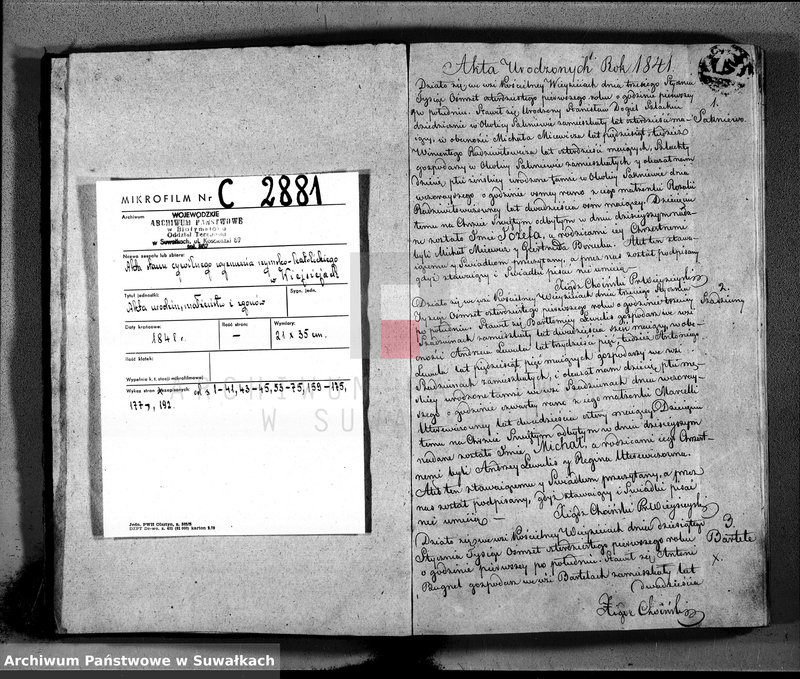 MIKROFILM Nr C 2881
Archiwum
WOJEWÓDZKIE
ARCHIWUM PAŃSTWOWE
w Białymstoku
Oddział Terenowy
w Suwałkach, ul. Kościuszki 69
Nazwa zespołu lub zbioru:
Akta stanu cywilnego wyznania rzymsko-katolickiego
w Wiejsiejach
Tytuł jednostki:
Sygn. jedn.
Akta urodzin, małżeństw i zgonów
Daty krańcowe:
Ilość stron:
Wymiary:
1841 r.
—
21 x 35 cm.
Ilość klatek:
Wypełnia k. t. stacji mikrofilmowej
Wykaz stron
od s 1-41, 43-45, 53-75, 159-175,
177, 192.
Jedn. PWH Olsztyn, z.
Akta Urodzonych Rok 1841
1.
Działo się we wsi Kościelney Wieysieiach dnia trzeciego Stycznia
Tysiąc Osmset czterdziestego pierwszego roku o godzinie pierwszey
po południu. Stawił się Urodzony Stanisław Dogiel Szlachcic
dziedzic w Okolicy Sakniewie zamieszkały lat czterdzieści ma-
Sakniewo.
iący, w obecności Michała Micewicza lat pięćdziesiąt, tudzież
Wincentego Radziwiłowicza lat czterdzieści maiących, Szlachty
gospodarzy w Okolicy Sakniewie zamieszkałych y okazał nam
dziecię płci żeńskiey urodzone tamże w Okolicy Sakniewie dnia
wczorayszego o godzinie osmey rano z iego małżonki Rozalii
Radziwiłowiczowny lat dwadzieścia osm maiącey. Dziecięciu
temu na Chrzcie Świętym odbytym w dniu dzisieyszym nada-
ne zostało Imie Józefa, a rodzicami iey Chrzestnemi
byli Michał Micewicz y Gertruda Borucka. Akt ten stawa-
iącemu y Świadkom przeczytany, a przez nas został podpisany
gdyż stawaiący i Świadki pisać nie umieią —
Xiądz Choiński Pr. Wieysieyski
2.
Działo się we wsi Kościelney Wieysieiach dnia trzeciego Stycznia
Tysiąc Osmset czterdziestego pierwszego roku o godzinie trzeciey
Szadziuny
po południu. Stawił się Bartłomiey Lewulis gospodarz we wsi
Szadziunach zamieszkały lat dwadzieścia siedm maiący, w obe-
cności Andrzeia Lewula lat trzydzieści pięć, tudzież Antoniego
Lewula lat pięćdziesiąt pięć maiących gospodarzy we wsi
Szadziunach zamieszkałych, i okazał nam dziecię płci mę-
skiey urodzone tamże we wsi Szadziunach dnia wczoray-
szego o godzinie czwartey rano z iego małżonki Marcelli
lat dwadzieścia cztery maiącey. Dziecięciu
temu na Chrzcie Świętym odbytym w dniu dzisieyszym
nadane zostało Imie Michał, a rodzicami iego Chrzest-
nemi byli Andrzey Lewulis y Regina
Akt ten stawaiącemu y Świadkom przeczytany, a przez
nas został podpisany, gdyż stawaiący i Świadki pisać
nie umieią —
Xiądz Choiński Pr. Wieysieyski
3.
Działo się we wsi Kościelney Wieysieiach dnia dziesiątego
Bartele
Stycznia Tysiąc Osmset czterdziestego pierwszego roku
x.
o godzinie pierwszey po południu. Stawił się Antoni
Bugnet gospodarz we wsi Bartelach zamieszkały lat
dwadzieścia
Xiądz Choiński
ARCHIWUM
W SUWAŁKACH
Archiwum Państwowe w Suwałkach